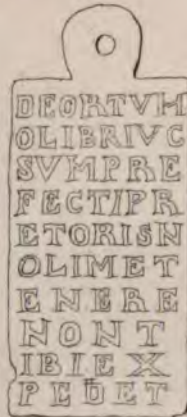 DEORTVM
OLIBRIVC
SVMPRE
FECTIPR
ETORISN
OLIMET
ENERE
NONT
IBIEX
PEDET